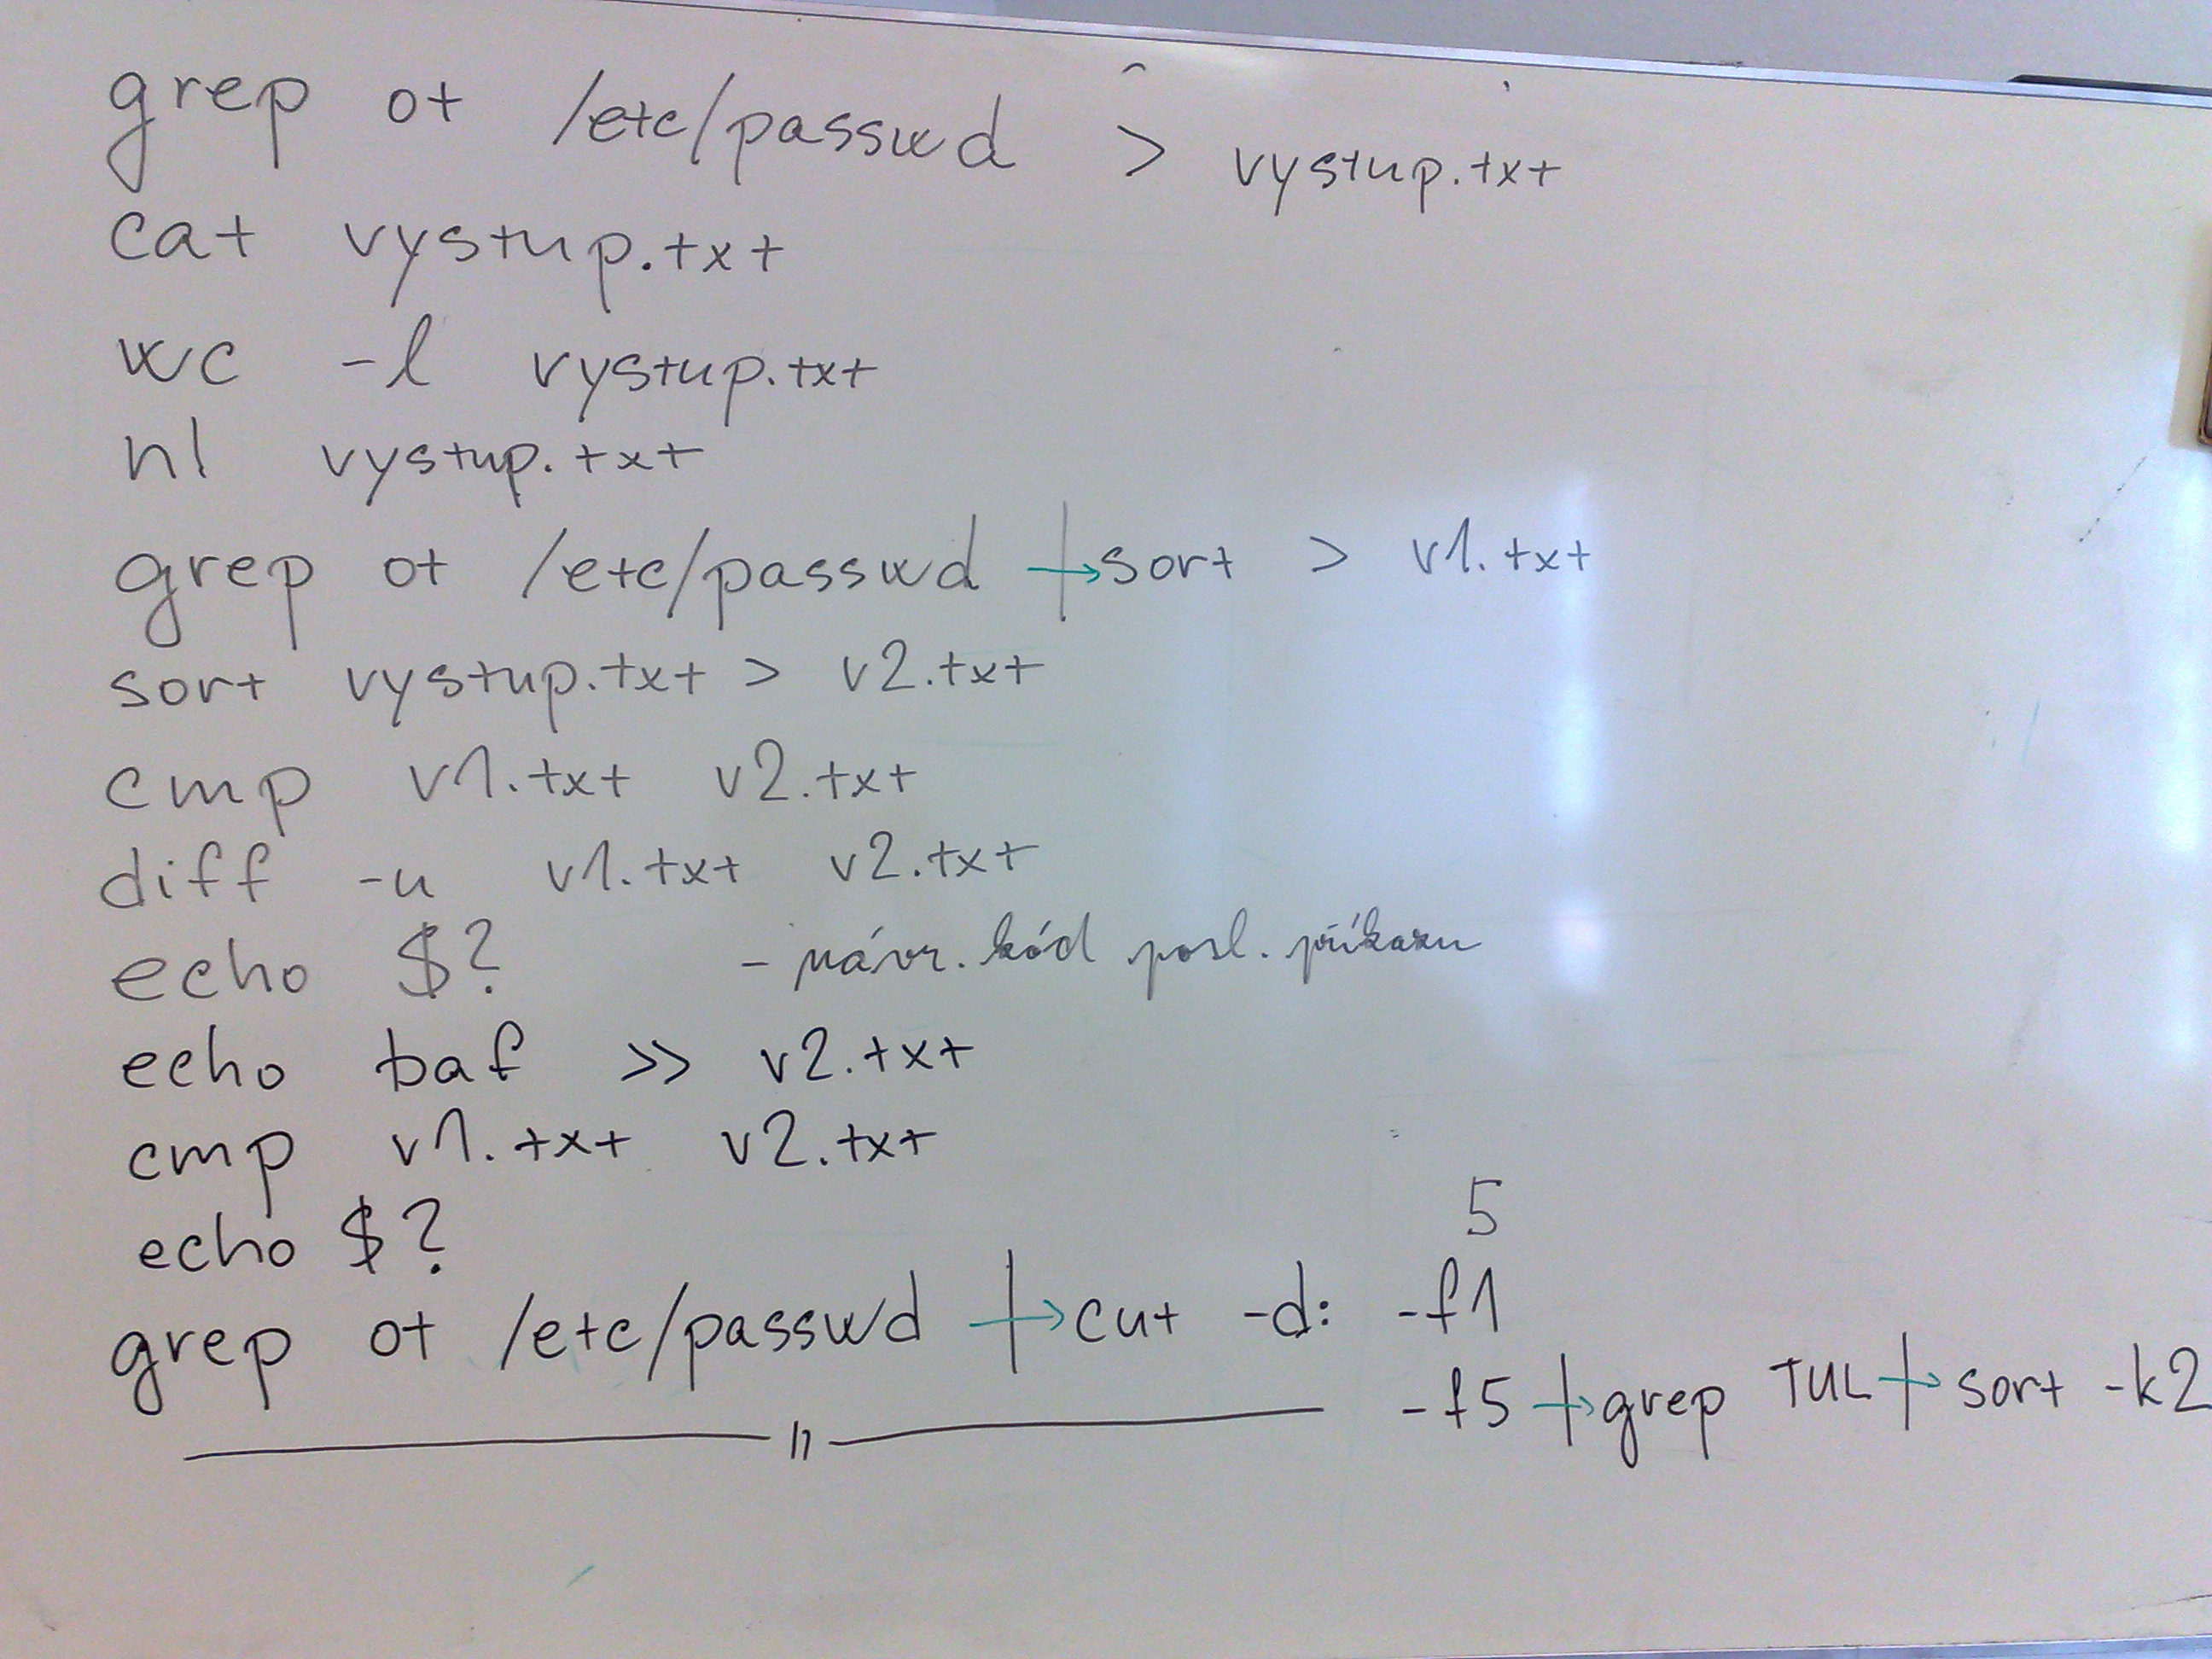 grep ot /etc/passwd > vystup.txt
cat vystup.txt
wc -l vystup.txt
nl vystup.txt
grep ot /etc/passwd | sort > v1.txt
sort vystup.txt > v2.txt
cmp v1.txt v2.txt
diff -u v1.txt v2.txt
echo $? - návr. kód posl. příkazu
echo baf >> v2.txt
cmp v1.txt v2.txt
echo $?
5
grep ot /etc/passwd | cut -d: -f1
—— 11 —— -f5 | grep TUL | sort -k2